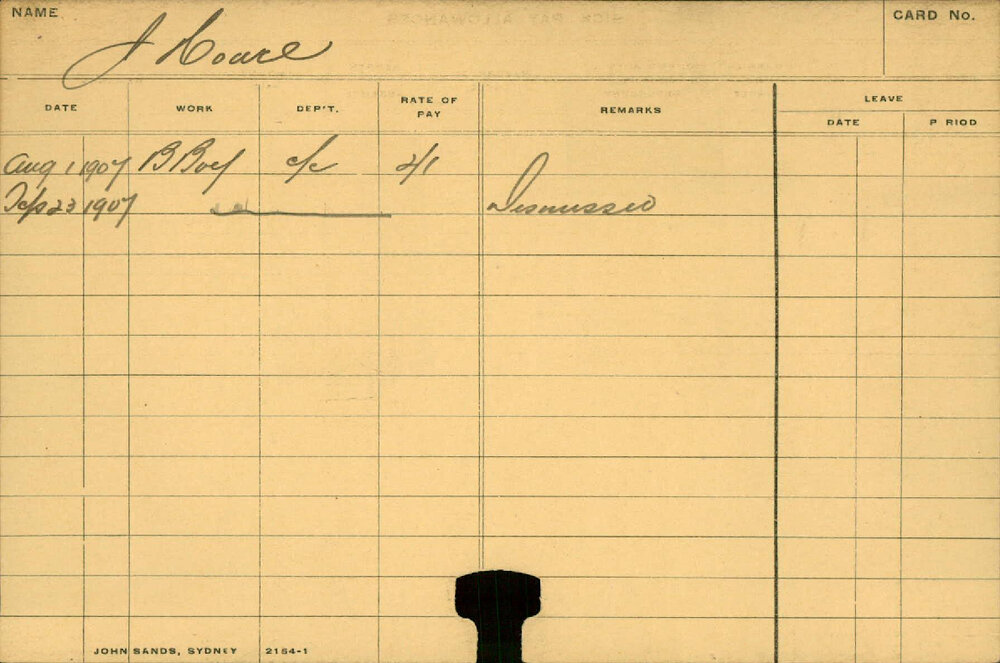 NAME
J Hoare
CARD No.
DATE WORK DEP'T. RATE OF PAY REMARKS LEAVE
DATE P RIOD
Aug 1 1907 B Boy c/c 2/1
23 1907 Dismissed
JOHN SANDS, SYDNEY 2154-1